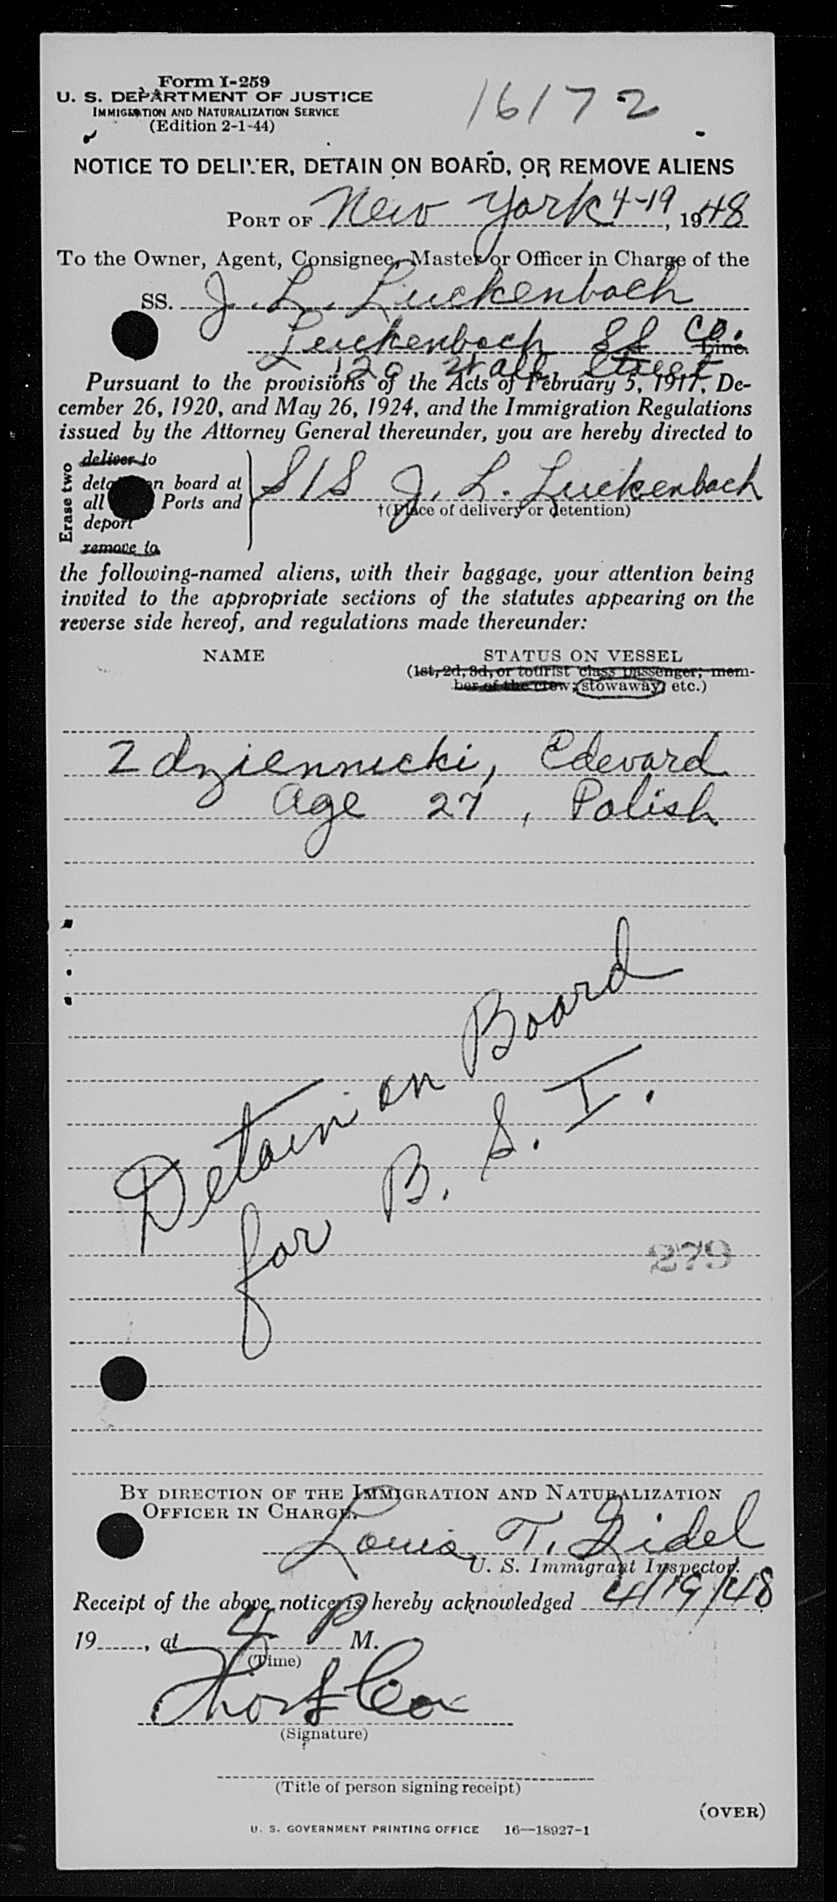 Form I-259
U. S. DEPARTMENT OF JUSTICE
IMMIGRATION AND NATURALIZATION SERVICE
(Edition 2-1-44)
16172
NOTICE TO DELIVER, DETAIN ON BOARD, OR REMOVE ALIENS
PORT OF New York 4-19, 1948
To the Owner, Agent, Consignee, Master or Officer in Charge of the
SS. J. L. Luckenbach
Luckenbach SS Co. Line.
120 Wall Street
Pursuant to the provisions of the Acts of February 5, 1917, De-
cember 26, 1920, and May 26, 1924, and the Immigration Regulations
issued by the Attorney General thereunder, you are hereby directed to
Erase two
deliver to
detain on board at
all Ports and
deport
remove to
S/S J. L. Luckenbach
†(Place of delivery or detention)
the following-named aliens, with their baggage, your attention being
invited to the appropriate sections of the statutes appearing on the
reverse side hereof, and regulations made thereunder:
NAME STATUS ON VESSEL
(1st, 2d, 3d, or tourist class passenger; mem-
ber of the crew; stowaway, etc.)
Zdziennicki, Edward
Age 27, Polish
Detain on Board
for B. S. I.
279
BY DIRECTION OF THE IMMIGRATION AND NATURALIZATION
OFFICER IN CHARGE.
Louis T. Gidel
U. S. Immigrant Inspector.
Receipt of the above notice is hereby acknowledged 4/19/48
19......, at 4 P M.
(Time)
Thos Cox
(Signature)
(Title of person signing receipt)
(OVER)
U. S. GOVERNMENT PRINTING OFFICE 16—18927-1